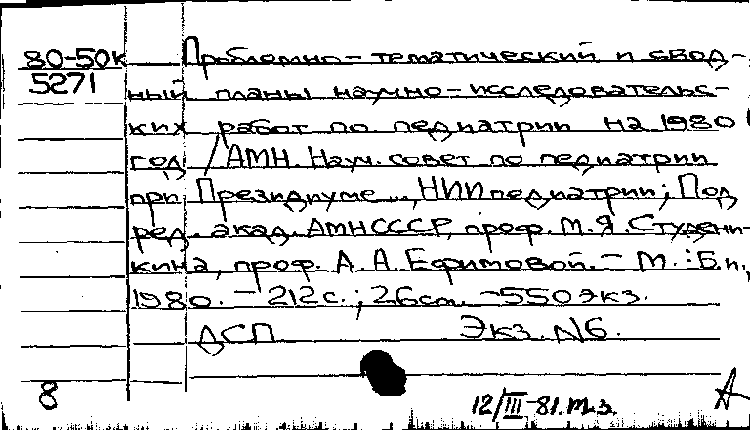 80-50к Проблемно-тематический и свод-
5271 ный планы научно-исследовательс-
ких работ по педиатрии на 1980
год / АМН. Науч. совет по педиатрии
при Президиуме..., НИИ педиатрии; Под
ред. акад. АМН СССР, проф. М. Я. Студени-
кина, проф. А. А. Ефимовой. - М. : Б.и.,
1980. - 212 с. ; 26 см. - 550 экз.
ДСП Экз. N6.
8
12/III-81. т.з.